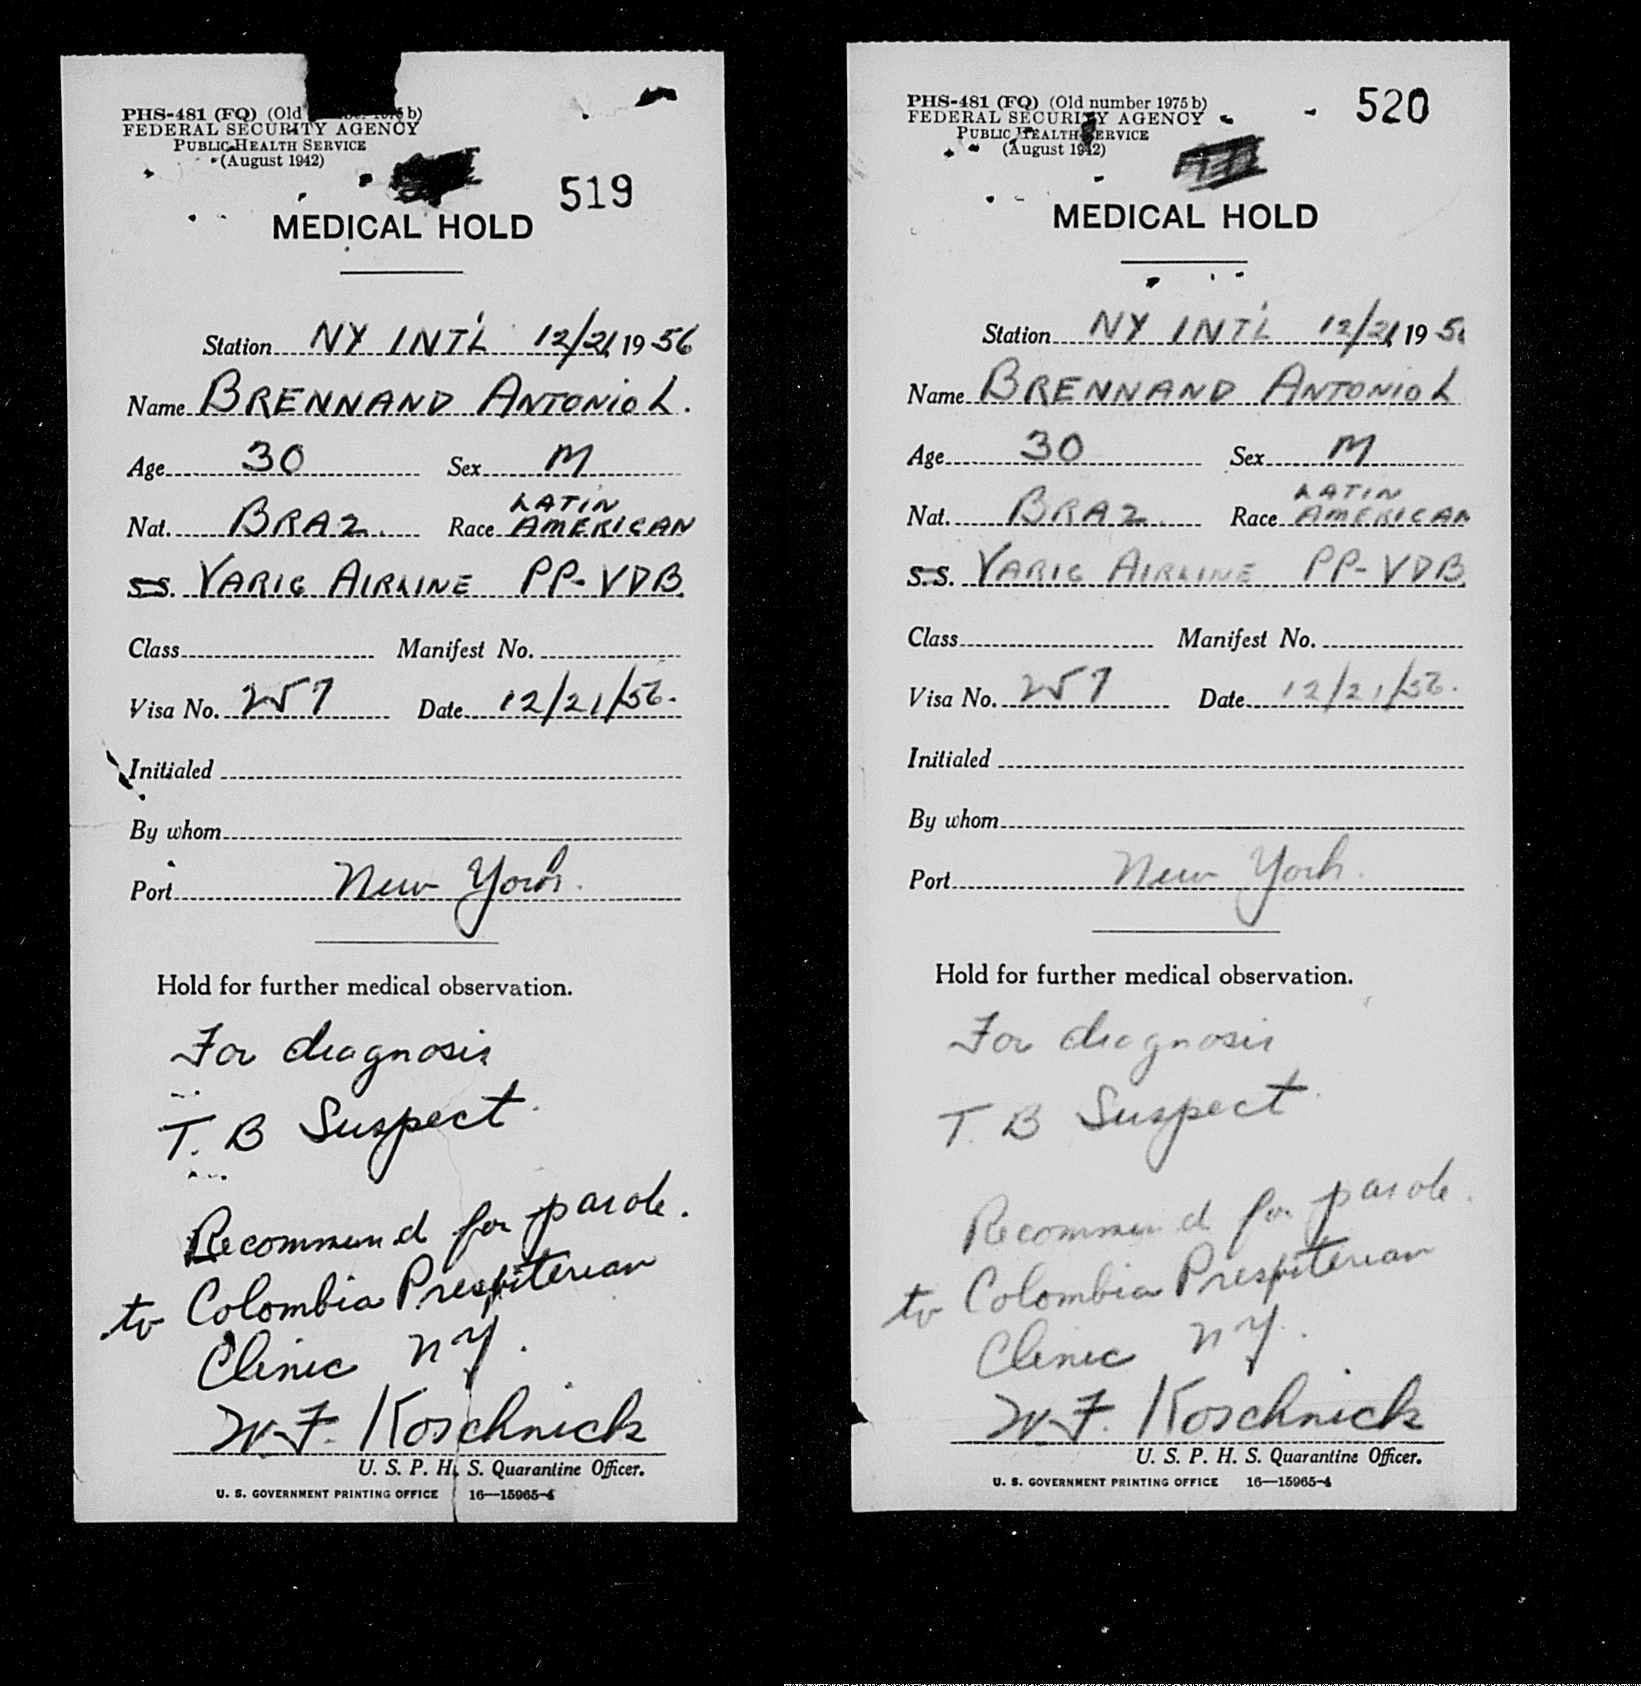 PHS-481 (FQ) (Old number 1975 b)
FEDERAL SECURITY AGENCY
PUBLIC HEALTH SERVICE
(August 1942)
519
MEDICAL HOLD
Station NY INT'L 12/21, 19 56
Name BRENNAND ANTONIO L.
Age 30 Sex M
Nat. BRAZ. Race LATIN AMERICAN
S.S. VARIG AIRLINE PP-VDB.
Class Manifest No.
Visa No. 257 Date 12/21/56.
Initialed
By whom
Port New York.
Hold for further medical observation.
For diagnosis
T. B Suspect.
Recommend for parole.
to Colombia Presbiterian
Clinic NY.
W F. Koschnick
U. S. P. H. S. Quarantine Officer.
U. S. GOVERNMENT PRINTING OFFICE 16—15965-4
PHS-481 (FQ) (Old number 1975 b)
FEDERAL SECURITY AGENCY
PUBLIC HEALTH SERVICE
(August 1942)
520
MEDICAL HOLD
Station NY INT'L 12/21, 19 56
Name BRENNAND ANTONIO L
Age 30 Sex M
Nat. BRAZ. Race LATIN AMERICAN
S.S. VARIG AIRLINE PP-VDB.
Class Manifest No.
Visa No. 257 Date 12/21/56.
Initialed
By whom
Port New York.
Hold for further medical observation.
For diagnosis
T. B Suspect.
Recommend for parole.
to Colombia Presbiterian
Clinic NY.
W F. Koschnick
U. S. P. H. S. Quarantine Officer.
U. S. GOVERNMENT PRINTING OFFICE 16—15965-4